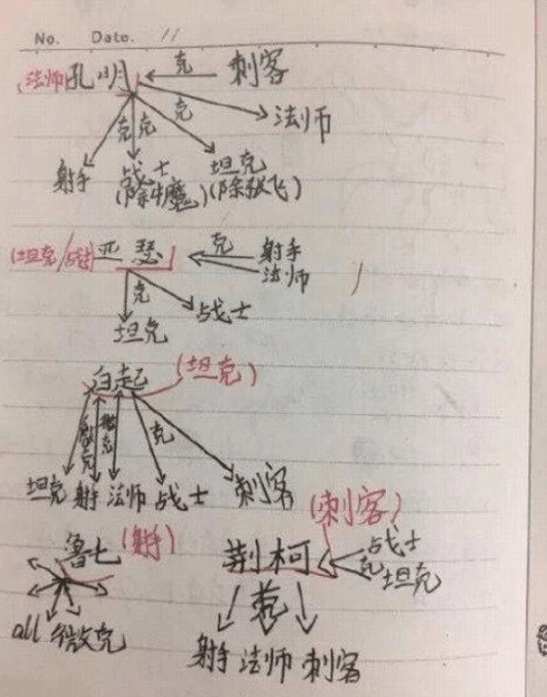 No. Date. 11
(法师)孔明 克 刺客
克 克 克 法师
射手 战士 坦克
(除牛魔)(除张飞)
(坦克/战士)亚瑟 克 射手
法师
克 战士
坦克
白起 (坦克)
微克 微克 克
坦克 射手 法师 战士 刺客
鲁七 (射手) (刺客)
荆柯 战士
克 坦克
all 微克 克
射手 法师 刺客